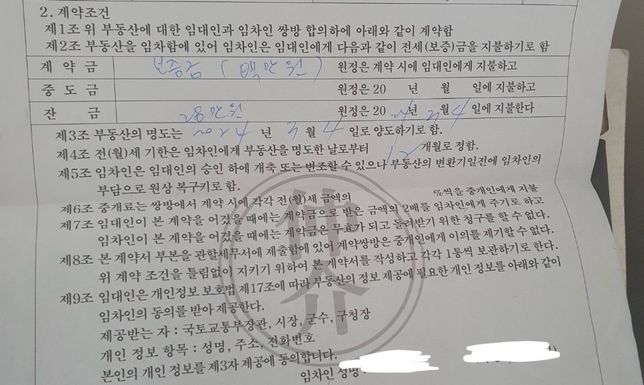 2. 계약조건
제1조 위 부동산에 대한 임대인과 임차인 쌍방 합의하에 아래와 같이 계약함
제2조 부동산을 임차함에 있어 임차인은 임대인에게 다음과 같이 전세(보증)금을 지불하기로 함
계약금 보증금 (백만원) 원정은 계약 시에 임대인에게 지불하고
중도금 원정은 20 년 월 일에 지불하고
잔금 28만원 원정은 2024년 3월 4일에 지불한다
제3조 부동산의 명도는 2024년 3월 4일로 양도하기로 함.
제4조 전(월)세 기한은 임차인에게 부동산을 명도한 날로부터 12개월로 정함.
제5조 임차인은 임대인의 승인 하에 개축 또는 변조할 수 있으나 부동산의 변환기일전에 임차인의
부담으로 원상 복구키로 함.
제6조 중개료는 쌍방에서 계약 시에 각각 전(월)세 금액의 %씩을 중개인에게 지불
제7조 임대인이 본 계약을 어겼을 때에는 계약금으로 받은 금액의 2배를 임차인에게 주기로 하고
임차인이 본 계약을 어겼을 때에는 계약금은 무효가 되고 돌려받기 위한 청구를 할 수 없다.
제8조 본 계약서 부본을 관할세무서에 제출함에 있어 계약쌍방은 중개인에게 이의를 제기할 수 없다.
위 계약 조건을 틀림없이 지키기 위하여 본 계약서를 작성하고 각각 1통씩 보관하기로 한다.
제9조 임대인은 개인정보 보호법 제17조에 따라 부동산의 정보 제공에 필요한 개인 정보를 아래와 같이
임차인의 동의를 받아 제공한다.
제공받는 자 : 국토교통부장관, 시장, 군수, 구청장
개인 정보 항목 : 성명, 주소, 전화번호
본인의 개인 정보를 제3자 제공에 동의합니다.
임차인 성명
仲介